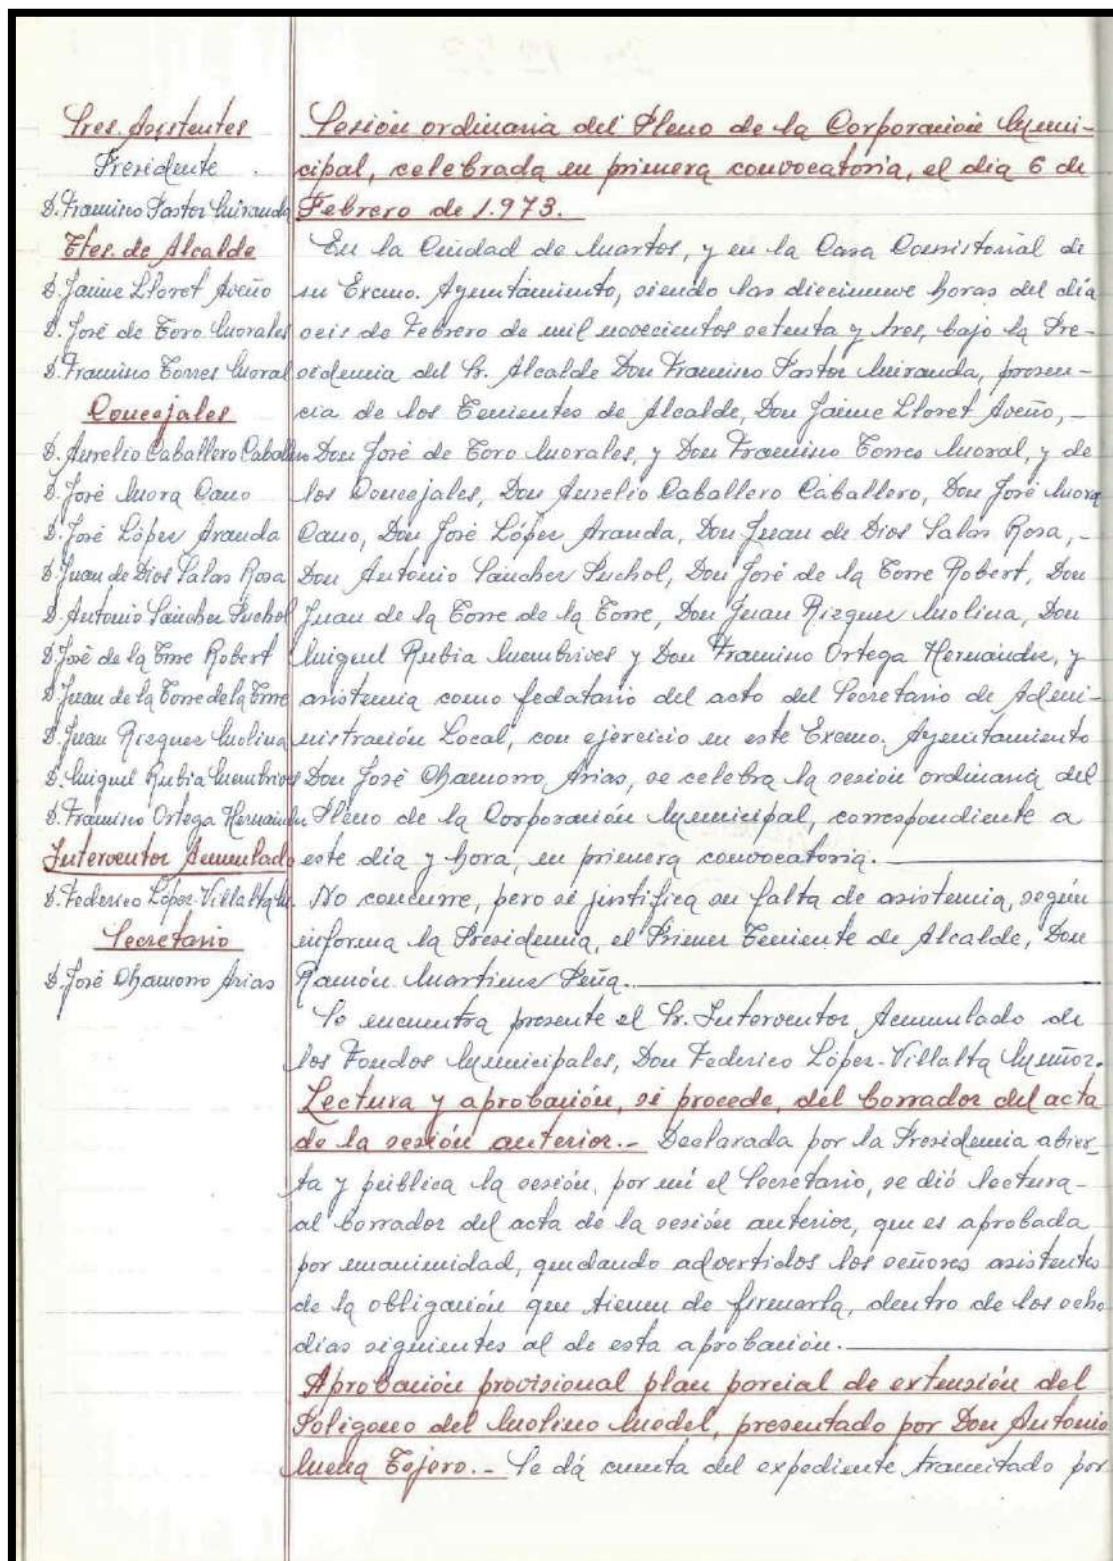 Sres. Asistentes
Presidente
D. Francisco Pastor Miranda
Ttes. de Alcalde
D. Jaime Lloret Aveño
D. José de Toro Morales
D. Francisco Torres Moral
Concejales
D. Aurelio Caballero Caballero
D. José Mora Cano
D. José López Aranda
D. Juan de Dios Salas Rosa
D. Antonio Sánchez Puchol
D. José de la Torre Robert
D. Juan de la Torre de la Torre
D. Juan Rizquez Molina
D. Miguel Rubia Membrives
D. Francisco Ortega Hernández
Interventor Acumulado
D. Federico López-Villalta M.
Secretario
D. José Chamorro Arias
Sesión ordinaria del Pleno de la Corporación Muni-
cipal, celebrada en primera convocatoria, el dia 6 de
Febrero de 1.973.
En la Ciudad de Martos, y en la Casa Consistorial de
su Excmo. Ayuntamiento, siendo las diecinueve horas del día
seis de Febrero de mil novecientos setenta y tres, bajo la Pre-
sidencia del Sr. Alcalde Don Francisco Pastor Miranda, presen-
cia de los Tenientes de Alcalde, Don Jaime Lloret Aveño,-
Don José de Toro Morales, y Don Francisco Torres Moral, y de
los Concejales, Don Aurelio Caballero Caballero, Don José Mora
Cano, Don José López Aranda, Don Juan de Dios Salas Rosa,-
Don Antonio Sánchez Puchol, Don José de la Torre Robert, Don
Juan de la Torre de la Torre, Don Juan Rizquez Molina, Don
Miguel Rubia Membrives y Don Francisco Ortega Hernández, y
asistencia como fedatario del acto del Secretario de Admi-
nistración Local, con ejercicio en este Excmo. Ayuntamiento
Don José Chamorro Arias, se celebra la sesión ordinaria del
Pleno de la Corporación Municipal, correspondiente a
este día y hora, en primera convocatoria.
No concurre, pero si justifica su falta de asistencia, según
informa la Presidencia, el Primer Teniente de Alcalde, Don
Ramón Martinez Peña.
Se encuentra presente el Sr. Interventor Acumulado de
los Fondos Municipales, Don Federico López-Villalta Muñoz.
Lectura y aprobación, si procede, del borrador del acta
de la sesión anterior.- Declarada por la Presidencia abier-
ta y pública la sesión, por mi el Secretario, se dió lectura-
al borrador del acta de la sesión anterior, que es aprobada
por unanimidad, quedando advertidos los señores asistentes
de la obligación que tienen de firmarla, dentro de los ocho
días siguientes al de esta aprobación.
Aprobación provisional plan parcial de extensión del
Poligono del Molino Medel, presentado por Don Antonio
Luna Tejero.- Se dá cuenta del expediente tramitado por